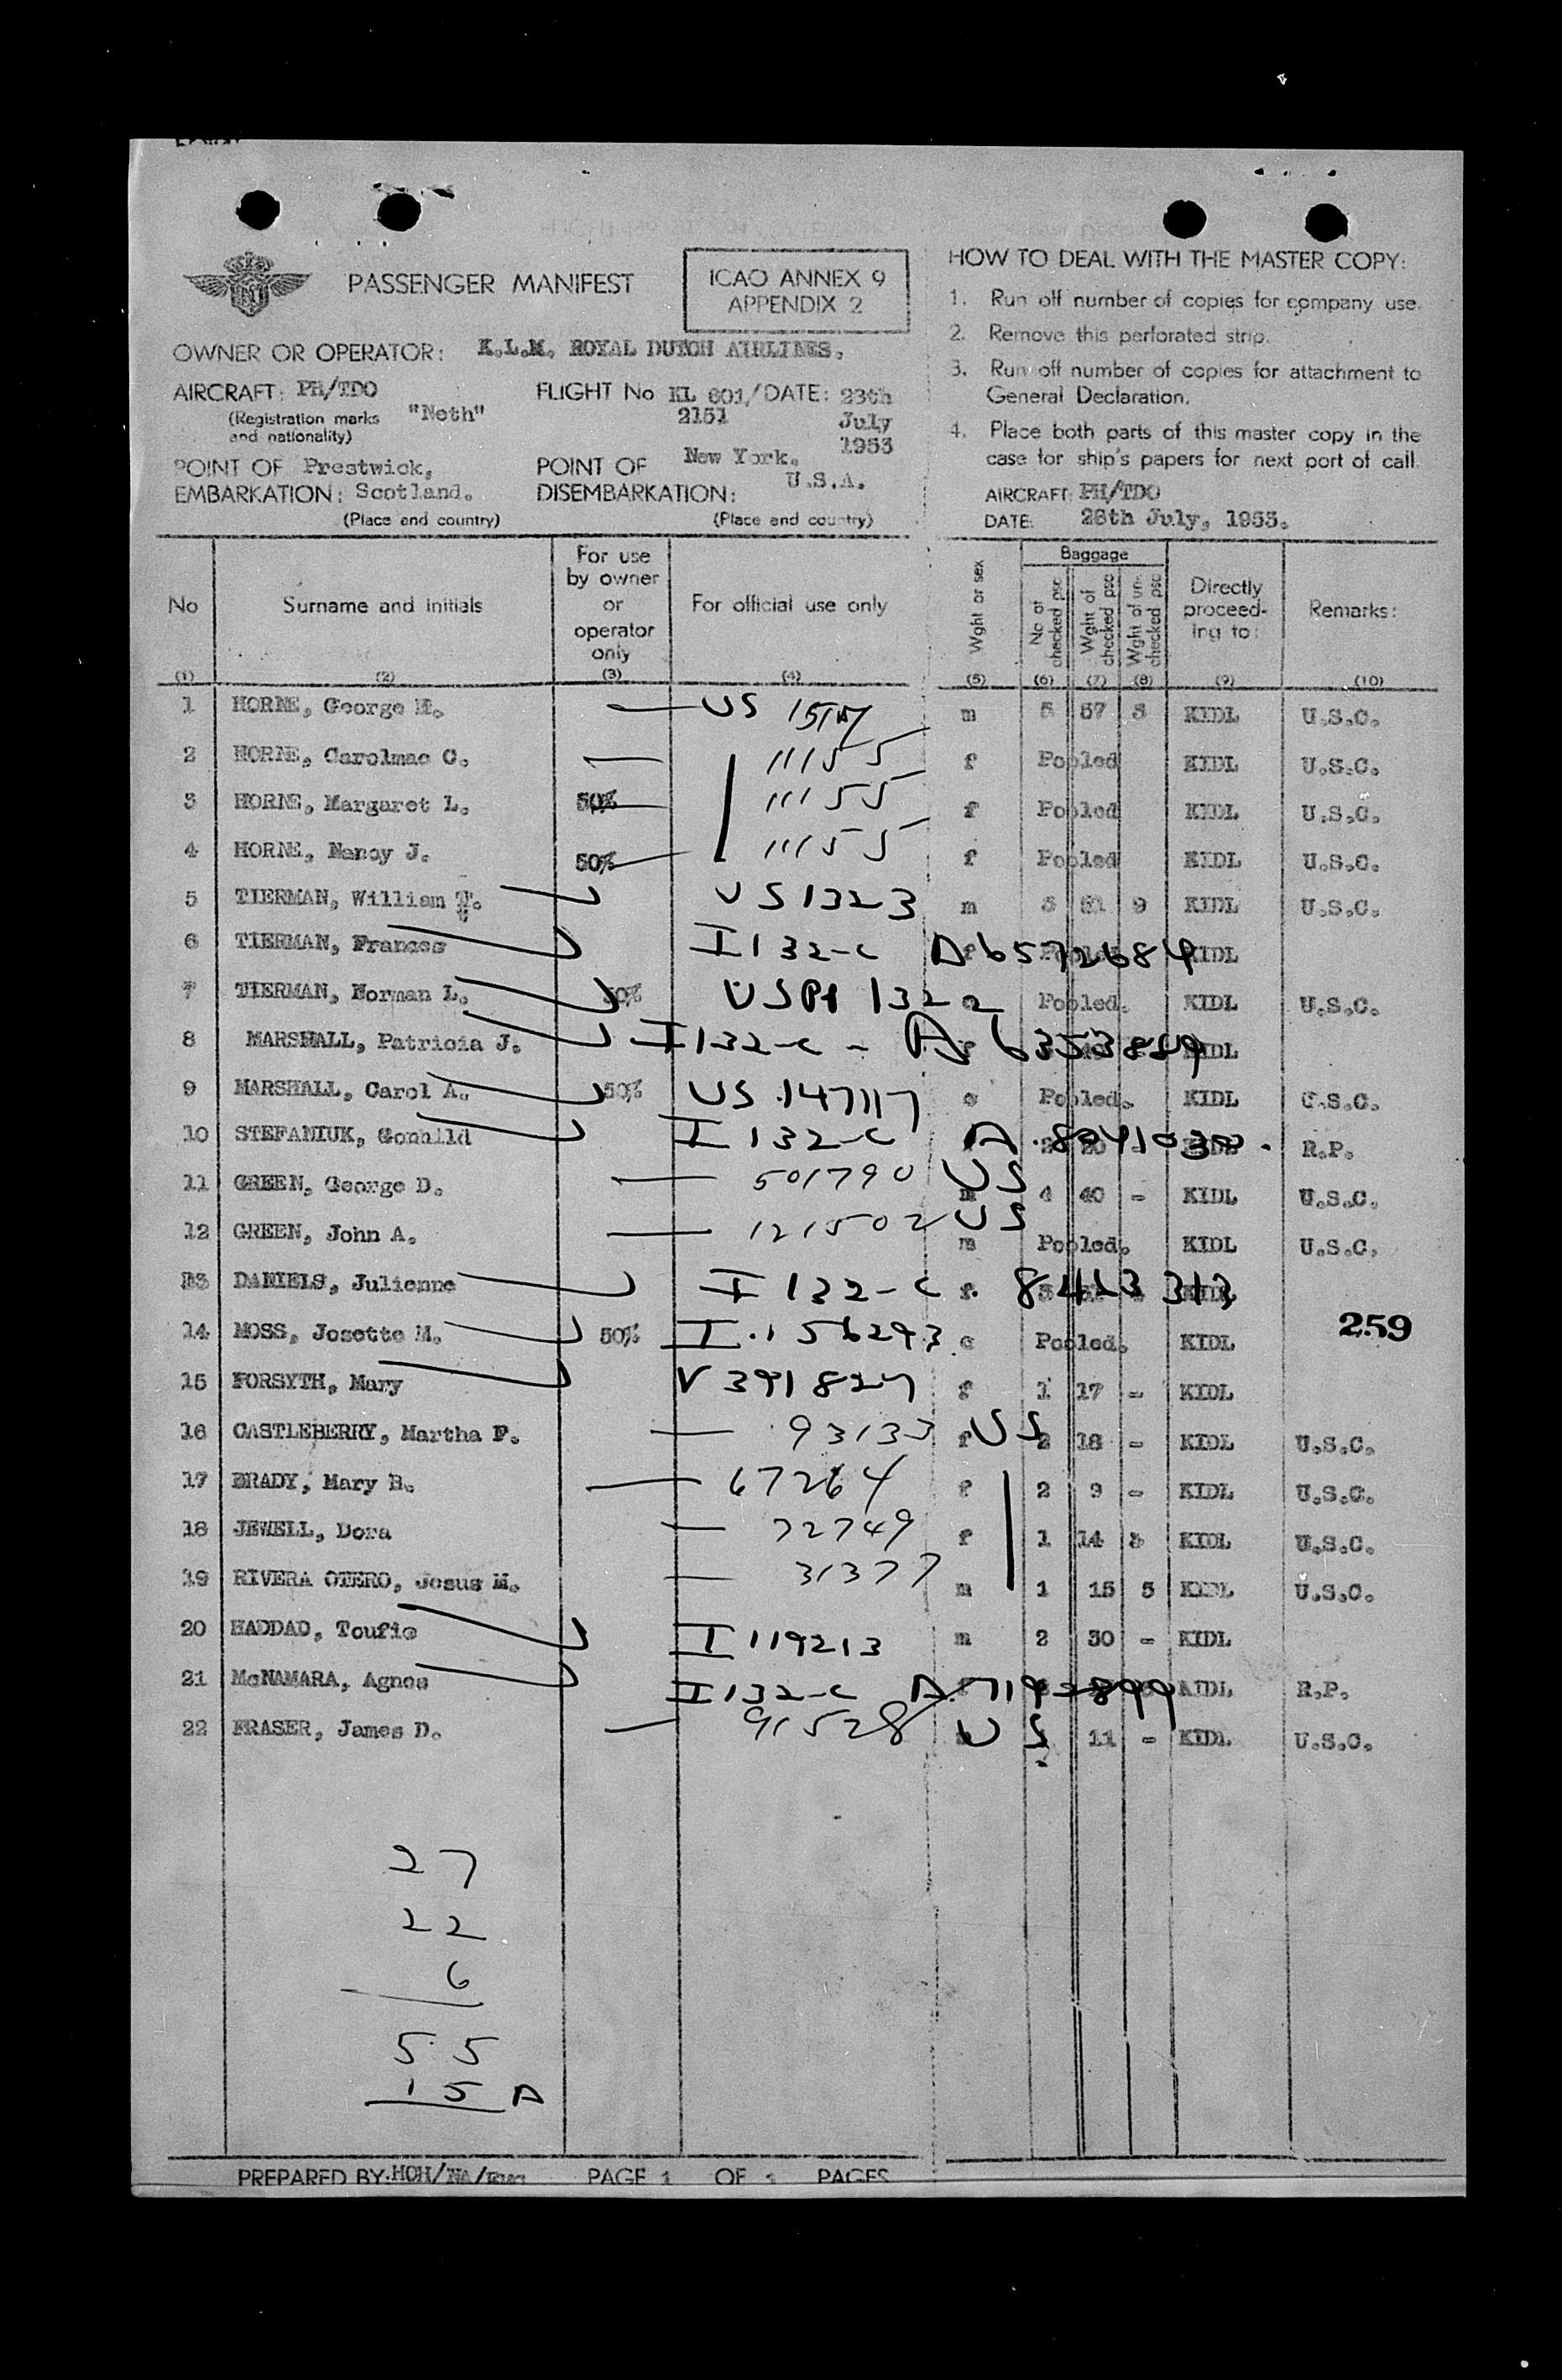 PASSENGER MANIFEST
ICAO ANNEX 9
APPENDIX 2
OWNER OR OPERATOR: K.L.M. ROYAL DUTCH AIRLINES.
AIRCRAFT: PH/TDO "Neth"
(Registration marks and nationality)
FLIGHT No KL 601/2151 DATE: 28th July 1953
POINT OF EMBARKATION: Prestwick, Scotland.
(Place and country)
POINT OF DISEMBARKATION: New York, U.S.A.
(Place and country)
HOW TO DEAL WITH THE MASTER COPY:
1. Run off number of copies for company use.
2. Remove this perforated strip.
3. Run off number of copies for attachment to
General Declaration.
4. Place both parts of this master copy in the
case for ship's papers for next port of call.
AIRCRAFT: PH/TDO
DATE: 28th July, 1953.
No Surname and initials For use by owner or operator only For official use only Wght or sex Baggage No of checked psc Wght of checked psc Wght of un-checked psc Directly proceed-ing to: Remarks:
(1) (2) (3) (4) (5) (6) (7) (8) (9) (10)
1 HORNE, George M. US m 5 57 KIDL U.S.C.
2 HORNE, Carolmae C. 11155 f Pooled KIDL U.S.C.
3 HORNE, Margaret L. 50% 11155 f Pooled KIDL U.S.C.
4 HORNE, Nancy J. 50% 11155 f Pooled KIDL U.S.C.
5 TIERMAN, William T. US 1323 m 5 9 KIDL U.S.C.
6 TIERMAN, Frances I 132-c A 6572684 KIDL
7 TIERMAN, Norman L. 50% 132 Pooled. KIDL U.S.C.
8 MARSHALL, Patricia J. I 132-c - A KIDL
9 MARSHALL, Carol A. 50% US 147117 c Pooled. KIDL U.S.C.
10 STEFANIUK, Gonhild I 132-c A R.P.
11 GREEN, George D. 501790 US m 4 40 - KIDL U.S.C.
12 GREEN, John A. 121502 US m Pooled. KIDL U.S.C.
13 DANIELS, Julienne I 132-c 8413313 f
14 MOSS, Josette M. 50% I 156293 c Pooled. KIDL
259
15 FORSYTH, Mary V 391827 f 1 17 - KIDL
16 CASTLEBERRY, Martha F. 93133 US f 2 18 - KIDL U.S.C.
17 BRADY, Mary B. 67264 f 2 9 - KIDL U.S.C.
18 JEWELL, Dora 72749 f 1 14 KIDL U.S.C.
19 RIVERA OTERO, Jesus M. 31377 m 1 15 5 KIDL U.S.C.
20 HADDAD, Toufic I 119213 m 2 30 - KIDL
21 McNAMARA, Agnes I 132-c A KIDL R.P.
22 FRASER, James D. 91528 US 11 - KIDL U.S.C.
27
22
6
55
15 A
PREPARED BY: HOH/NA/ PAGE 1 OF 1 PAGES